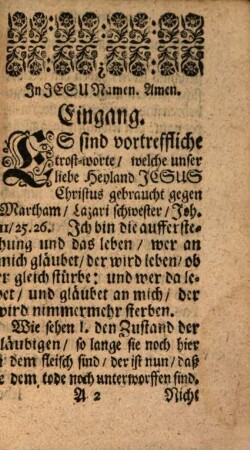 In JESU Namen. Amen.
Eingang.
ES sind vortreffliche
trost-worte/ welche unser
liebe Heyland JESUS
Christus gebraucht gegen
Martham/ Lazari schwester/ Joh.
11/25.26. Ich bin die aufferste-
hung und das leben/ wer an
mich gläubet, der wird leben/ ob
er gleich stürbe: und wer da le-
bet/ und gläubet an mich/ der
wird nimmermehr sterben.
Wie sehen 1. den Zustand der
gläubigen/ so lange sie noch hier
dem fleisch sind/ der ist nun/ daß
dem tode noch unterworffen sind.
A 2 Nicht